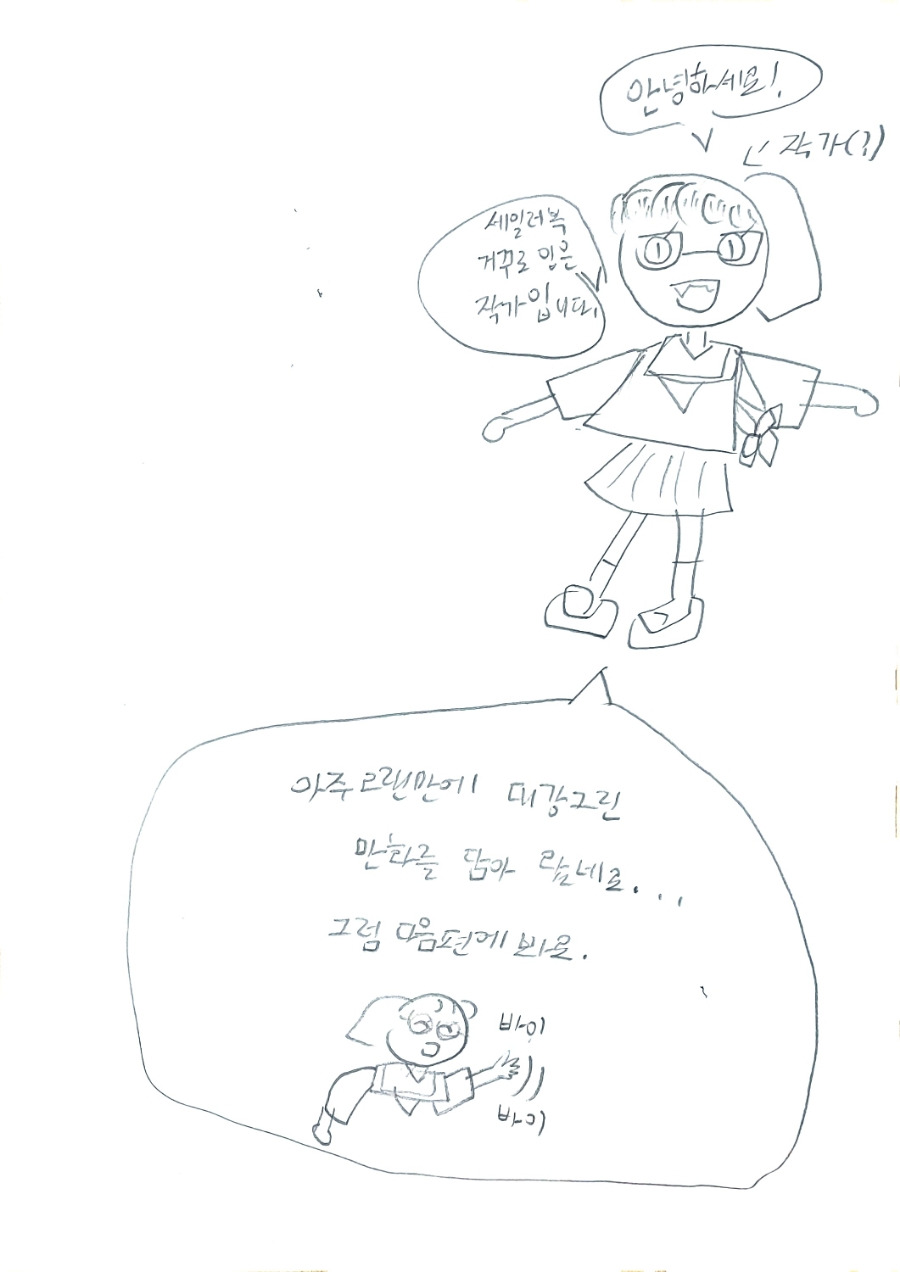 안녕하세요!
작가(?)
세일러복
거꾸로 입은
작가입니다.
아주 오랜만에 대강그린
만화를 담아
그럼 다음편에 봐요.
바이
바이